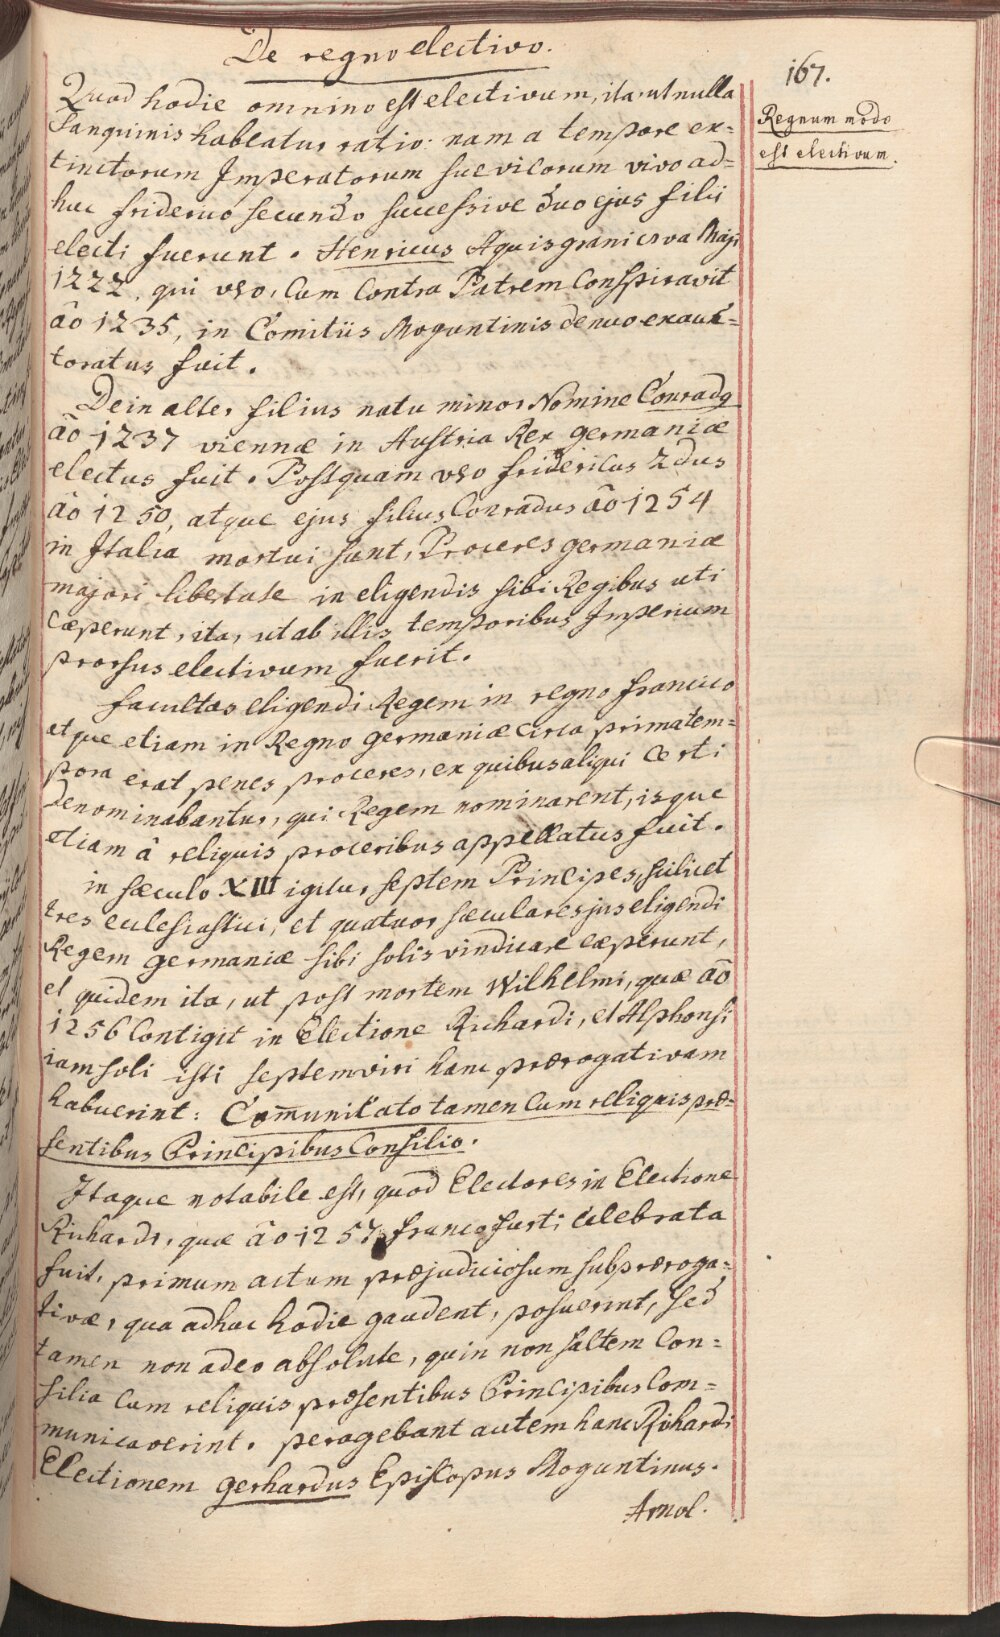 De regno electivo.
167.
Quod hodie omnino est electivum, ita, ut nulla
Regnum modo
est electivum.
Sanguinis habeatur ratio: nam a tempore ex=
tinctorum Imperatorum suevicorum vivo ad=
huc friderico secundo successive duo ejus filii
electi fuerunt. Henricus Aquisgrani circa Maji
1222, qui vero, Cum Contra Patrem Conspiravit
ao 1235, in Comitiis Moguntinis denuo exauc=
toratus fuit.
Dein alter filius natu minor Nomine Conradq
ao 1237 viennæ in Austria Rex germaniæ
electus fuit. Postquam vero fridericus 2dus
ao 1250, atque ejus filius Conradus ao 1254
in Italia mortui sunt, Proceres germaniæ
majori libertate in eligendis sibi Regibus uti
cæperunt, ita, ut ab illis temporibus Imperium
prorsus electivum fuerit.
facultas eligendi Regem in regno francico
atque etiam in Regno germaniæ circa prima tem=
pora erat penes proceres, ex quibus aliqui Certi
denominabantur, qui Regem nominarent, isque
etiam â reliquis proceribus appellatus fuit.
in sæculo XIII igitur septem Principes, scilicet
tres ecclesiastici, et quatuor sæculares jus eligendi
Regem germaniæ sibi solis vindicare cæperunt,
et quidem ita, ut post mortem Wilhelmi, quæ ao
1256 Contigit in Electione Richardi, et Alphonsi
iam soli isti septemviri hanc prærogativam
habuerint: Com̄unicato tamen Cum reliquis præ=
sentibus Principibus Consilio.
Itaque notabile est, quod Electores in Electione
Richardi, quæ ao 1257 francofurti Celebrata
fuit, primum actum præjudiciosum sub præroga=
tivæ, qua adhuc hodie gaudent, posuerint, sed
tamen non adeo absolute, quin non saltem Con=
silia Cum reliquis præsentibus Principibus Com=
municaverint. peragebant autem hanc Richardi
Electionem gerhardus Episcopus Moguntinus.
Arnol.